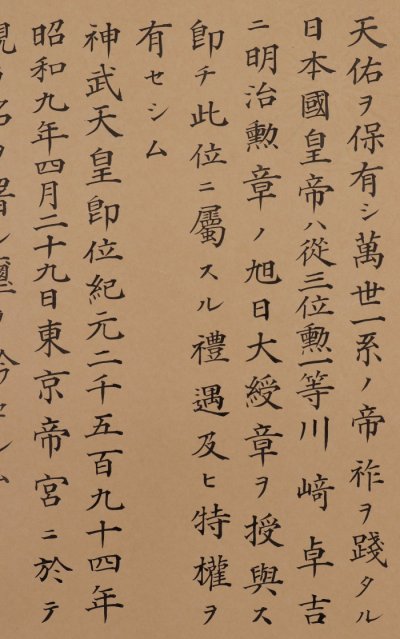 天佑ヲ保有シ萬世一系ノ帝祚ヲ踐タル
日本國皇帝ハ從三位勲一等川﨑卓吉
ニ明治勲章ノ旭日大綬章ヲ授與ス
卽チ此位ニ屬スル禮遇及ヒ特權ヲ
有セシム
神武天皇卽位紀元二千五百九十四年
昭和九年四月二十九日東京帝宮ニ於テ
親ラ名ヲ署シ璽ヲ鈐セシム